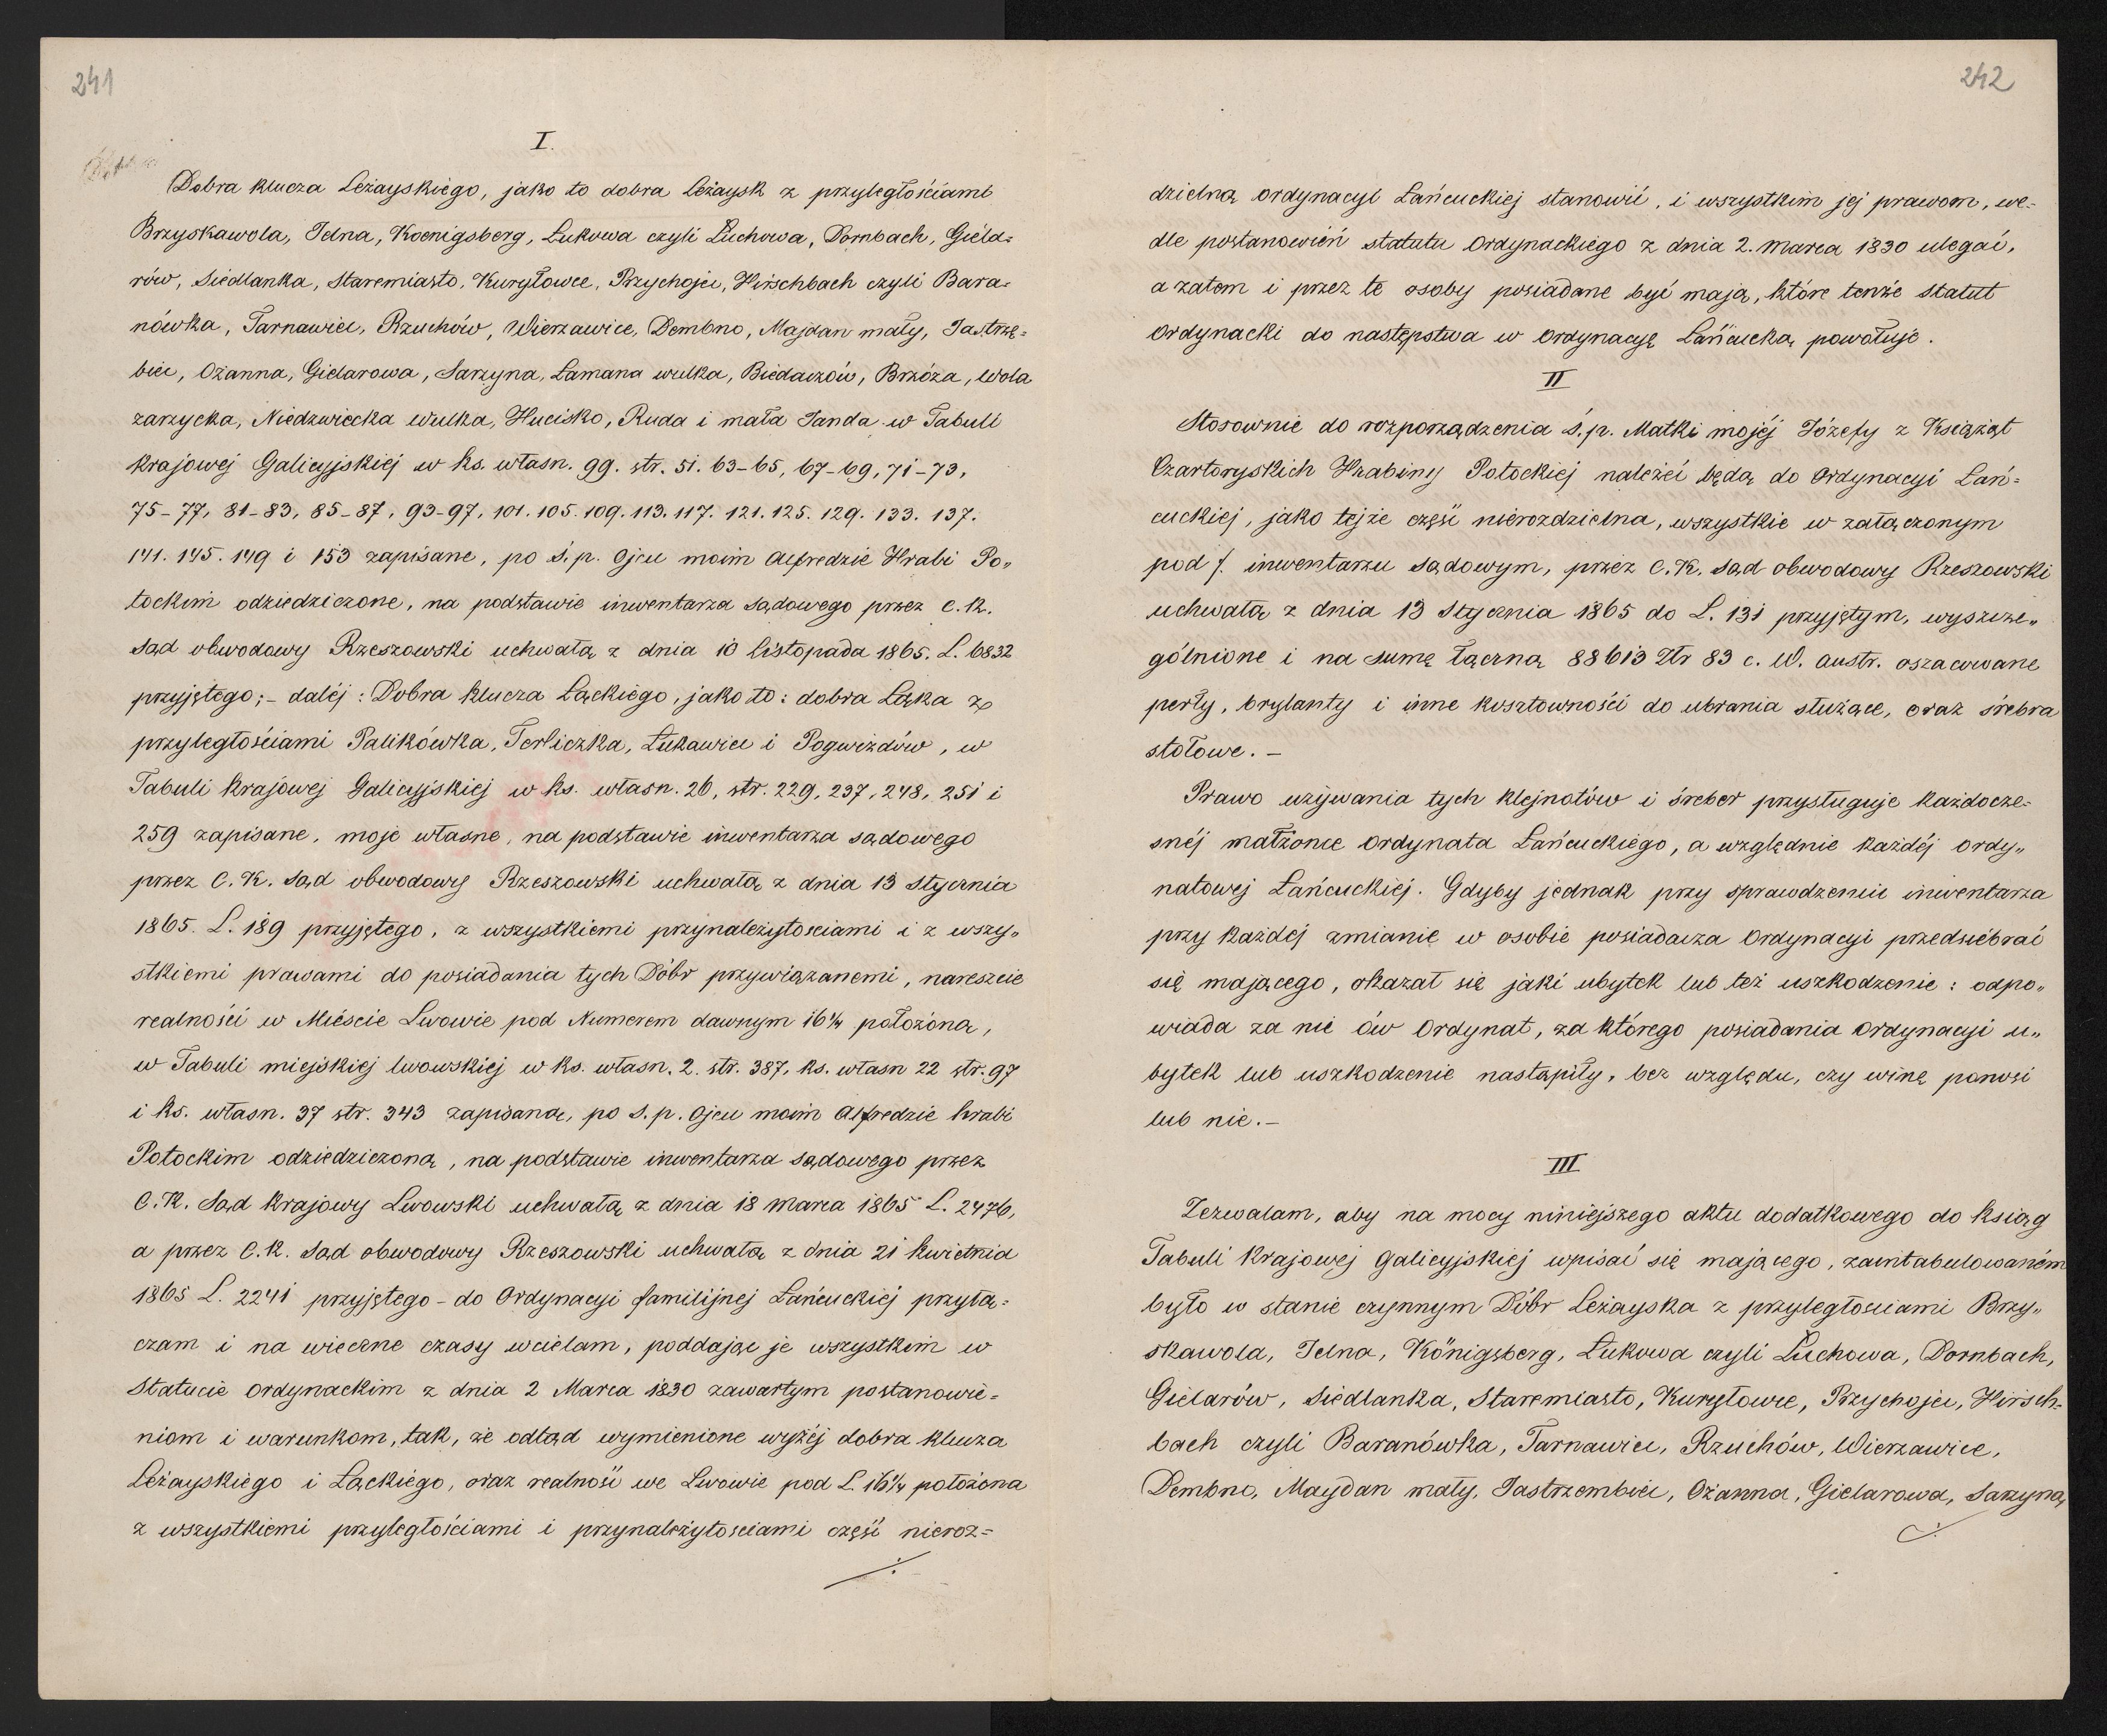 241
I.
Dobra klucza Leżayskiego, jako to dobra Leżaysk z przyległościami
Brzyskawola, Jelna, Koenigsberg, Łukowa czyli Łuchowa, Dornbach, Gieła-
rów, Siedlanka, Staremiasto, Kuryłowce, Przychojec, Hirschbach czyli Bara-
nówka, Tarnawiec, Rzuchów, Wierzawice, Dembno, Majdan mały, Jastrzę-
biec, Ożanna, Gielarowa, Sarzyna, Łamana wulka, Biedaczów, Brzóza, Wola
zarzycka, Niedzwiecka wulka, Hucisko, Ruda i mała Janda w Tabuli
krajowej Galicyjskiej w ks. własn. 99. str. 51. 63-65, 67-69, 71-73,
75-77, 81-83, 85-87, 93-97, 101. 105. 109. 113. 117. 121. 125. 129. 133. 137.
141. 145. 149 i 153 zapisane, po ś. p. Ojcu moim Alfredzie Hrabi Po„
tockim odziedziczone, na podstawie inwentarza sądowego przez C. K.
Sąd obwodowy Rzeszowski uchwałą z dnia 10 listopada 1865. L. 6832
przyjętego; - daléj: Dobra klucza Łąckiego, jako to: dobra Łąka z
przyległościami Palikówka, Terliczka, Łukawiec i Pogwizdów, w
Tabuli krajowej Galicyjskiej w ks. własn. 26, str. 229, 237, 248, 251 i
259 zapisane, moje własne, na podstawie inwentarza sądowego
przez C. K. Sąd obwodowy Rzeszowski uchwałą z dnia 13 Stycznia
1865. L. 189 przyjętego, z wszystkiemi przynależytosciami i z wszy„
stkiemi prawami do posiadania tych Dóbr przywiązanemi, nareszcie
realności w Mieście Lwowie pod Numerem dawnym 16¼ położoną,
w Tabuli miejskiej lwowskiej w ks. własn. 2. str. 387, ks. własn 22 str. 97
i ks. własn. 37 str. 343 zapisaną, po ś. p. Ojcu moim Alfredzie hrabi
Potockim odziedziczoną, na podstawie inwentarza sądowego przez
C. K. Sąd krajowy Lwowski uchwałą z dnia 18 Marca 1865 L. 2476,
a przez C. K. Sąd obwodowy Rzeszowski uchwałą z dnia 21 kwietnia
1865 L. 2241 przyjętego - do Ordynacyi familijnej Łańcuckiej przyłą-
czam i na wieczne czasy wcielam, poddając je wszystkim w
Statucie Ordynackim z dnia 2 Marca 1830 zawartym postanowie-
niom i warunkom, tak, że odtąd wymienione wyżéj dobra klucza
Leżayskiego i Łąckiego, oraz realność we Lwowie pod L. 16¼ położona
z wszystkiemi przyległościami i przynależytosciami część nieroz-
./.
242
dzielną ordynacyi Łańcuckiej stanowić, i wszystkim jej prawom, we-
dle postanowień statutu Ordynackiego z dnia 2. Marca 1830 ulegać,
a zatem i przez te osoby posiadane być mają, które tenże Statut
Ordynacki do następstwa w Ordynacyę Łańcucką powołuje.
II
Stosownie do rozporządzenia Ś. p. Matki mojéj Józefy z Książąt
Czartoryskich Hrabiny Potockiej należeć będą do Ordynacyi Łań-
cuckiej, jako tejże część nierozdzielna, wszystkie w załączonym
pod /. inwentarzu sądowym, przez C. K. Sąd obwodowy Rzeszowski
uchwałą z dnia 13 Stycznia 1865 do L. 131 przyjętym, wyszcze„
gólnione i na sumę łączną 88613 Złr 83 c. W. austr. oszacowane
perły, brylanty i inne kosztowności do ubrania służące, oraz śrebra
stołowe. -
Prawo używania tych klejnotów i śreber przysługuje każdocze-
snéj małżonce ordynata Łańcuckiego, a względnie każdéj ordy„
natowej Łańcuckiej. Gdyby jednak przy sprawdzeniu inwentarza
przy każdej zmianie w osobie posiadacza Ordynacyi przedsiębrać
się mającego, okazał się jaki ubytek lub też uszkodzenie: odpo„
wiada za nie ów Ordynat, za którego posiadania Ordynacyi u„
bytek lub uszkodzenie nastąpiły, bez względu, czy winę ponosi
lub nie. -
III
Zezwalam, aby na mocy niniejszego aktu dodatkowego do ksiąg
Tabuli Krajowej Galicyjskiej wpisać się mającego, zaintabulowaném
było w stanie czynnym Dóbr Leżayska z przyległosciami Brzy„
skawola, Jelna, Königsberg, Łukowa czyli Łuchowa, Dornbach,
Gielarów, Siedlanka, Staremiasto, Kuryłowce, Przychojec, Hirsch-
bach czyli Baranówka, Tarnawiec, Rzuchów, Wierzawice,
Dembno, Maydan mały, Jastrzembiec, Ożanna, Gielarowa, Sarzyna,
./.